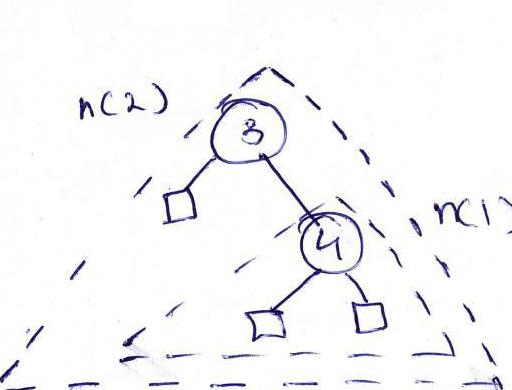 n(2)
3
n(1)
4